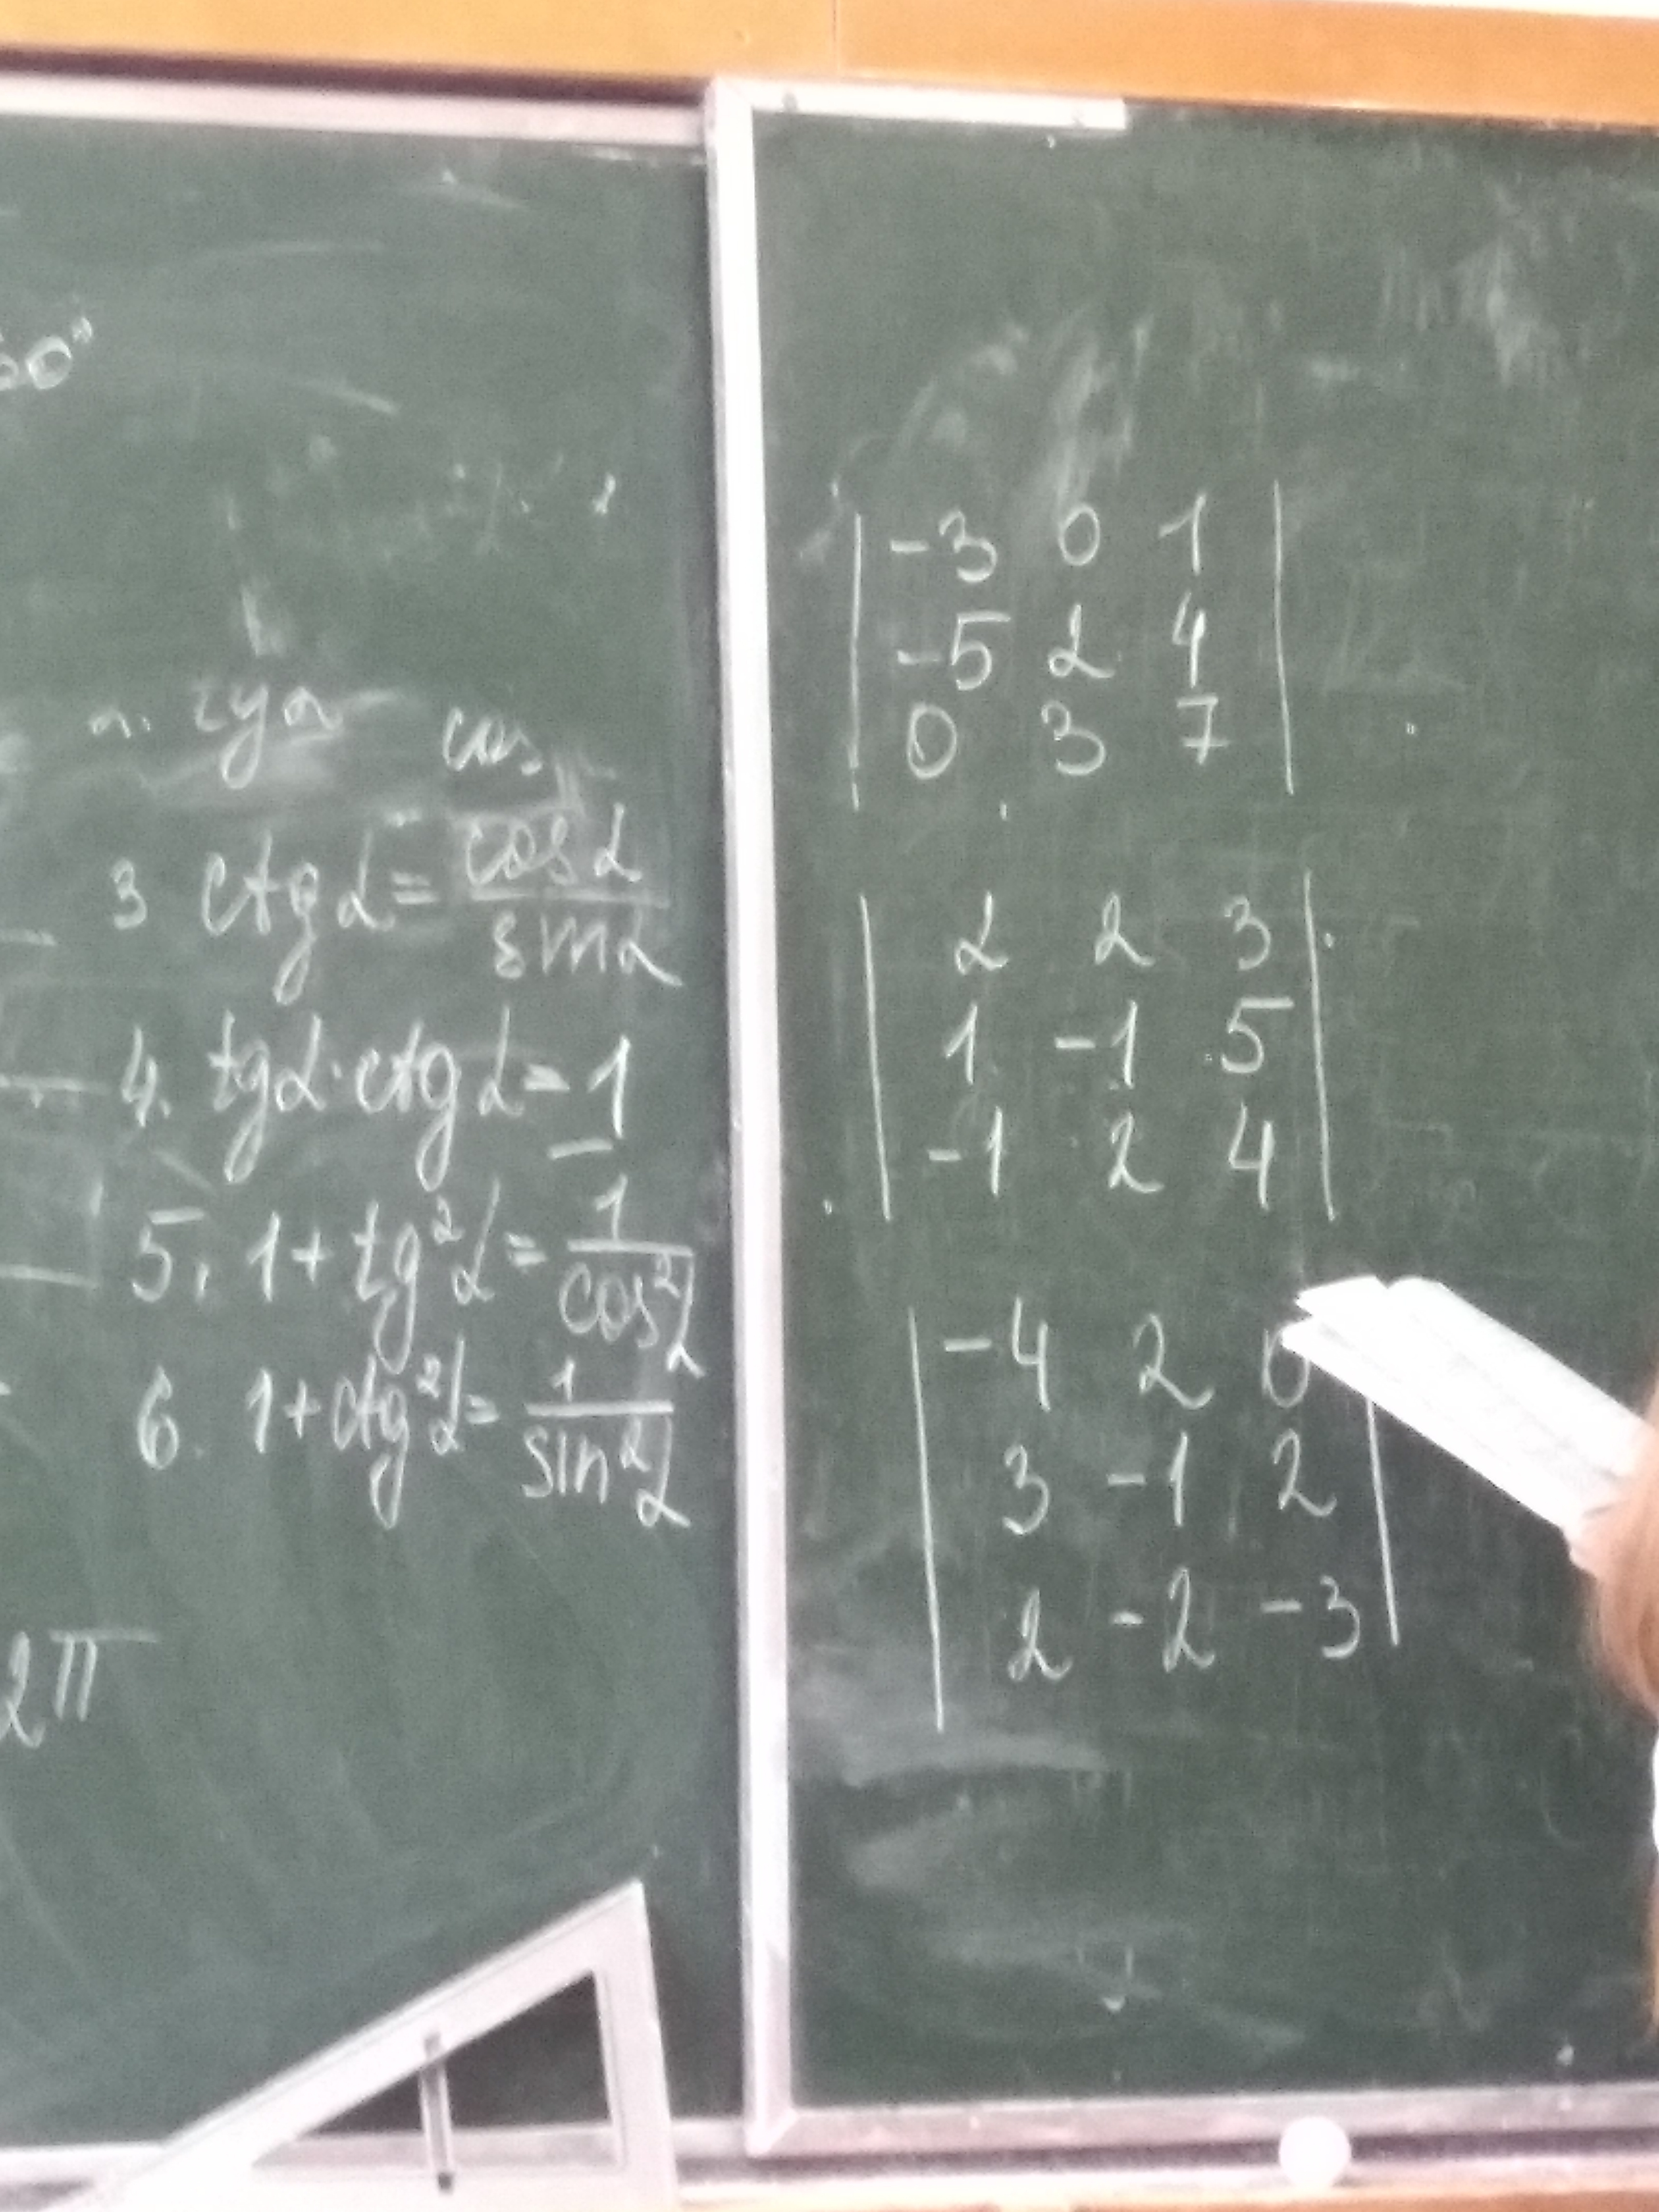 60°
tgα
cos
3 ctgα = cosα / sinα
4. tgα · ctgα = 1
5. 1 + tg²α = 1 / cos²α
6. 1 + ctg²α = 1 / sin²α
2π
| -3 0 1 |
| -5 2 4 |
| 0 3 7 |
| 2 2 3 |
| 1 -1 5 |
| -1 2 4 |
| -4 2 0 |
| 3 -1 2 |
| 2 -2 -3 |